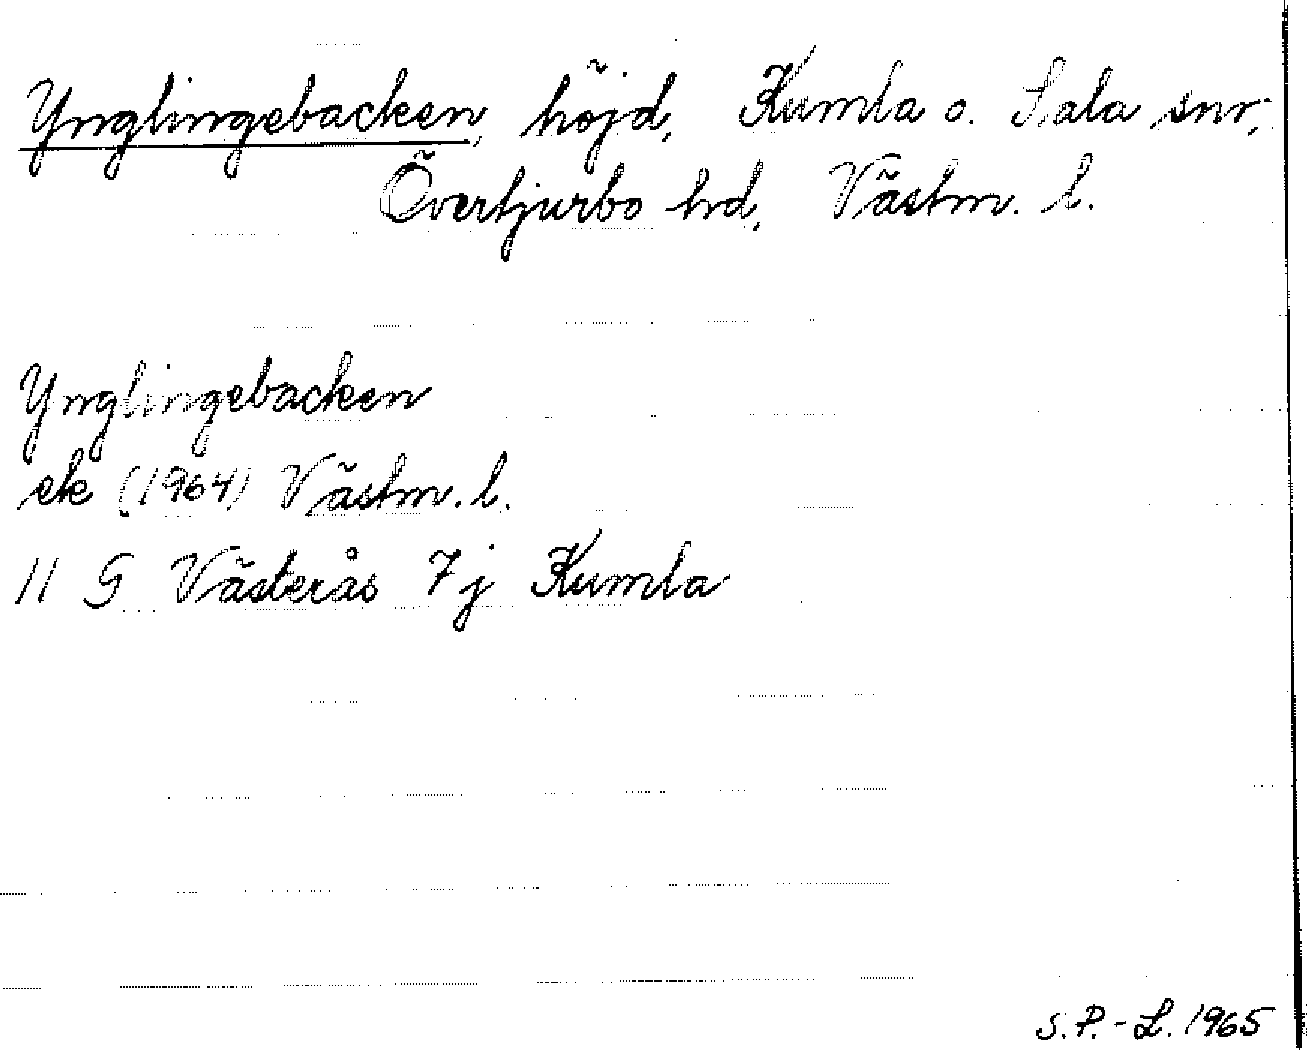 Ynglingebacken, höjd, Kumla o. Sala snr,
Övertjurbo hd, Västm. l.
Ynglingebacken
ek (1964) Västm. l.
11 G Västerås 7j Kumla
S.P.-L. 1965